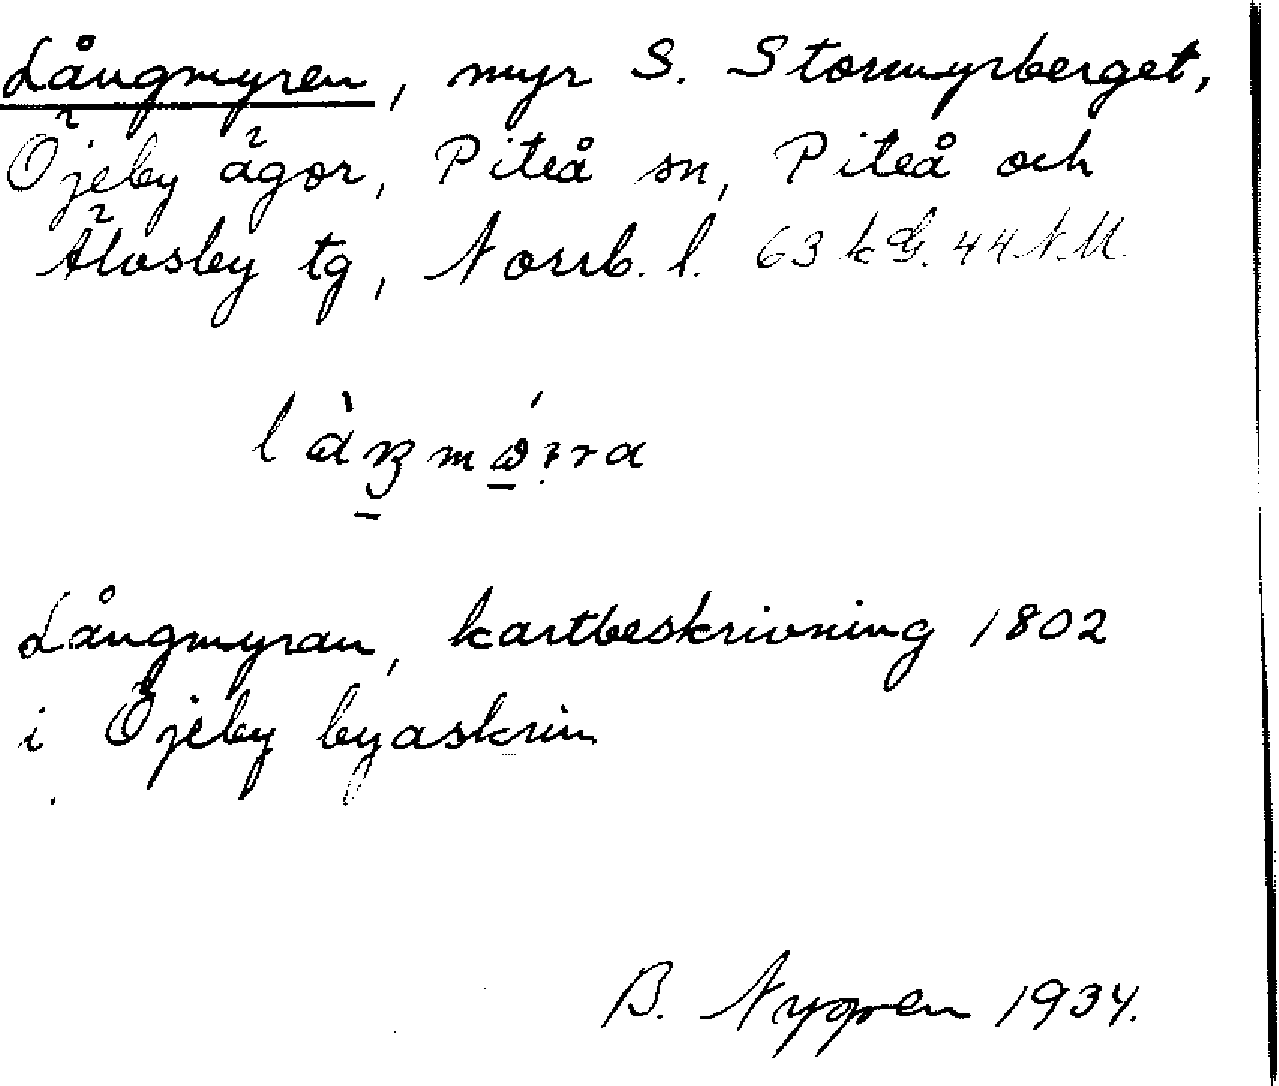 Långmyren, myr S. Stormyrberget,
Öjeby ägor, Piteå sn, Piteå och
Älvsby tg, Norrb. l. 63 k
Långmyran, kartbeskrivning 1802
i Öjeby byaskrin
B. Nygren 1934.